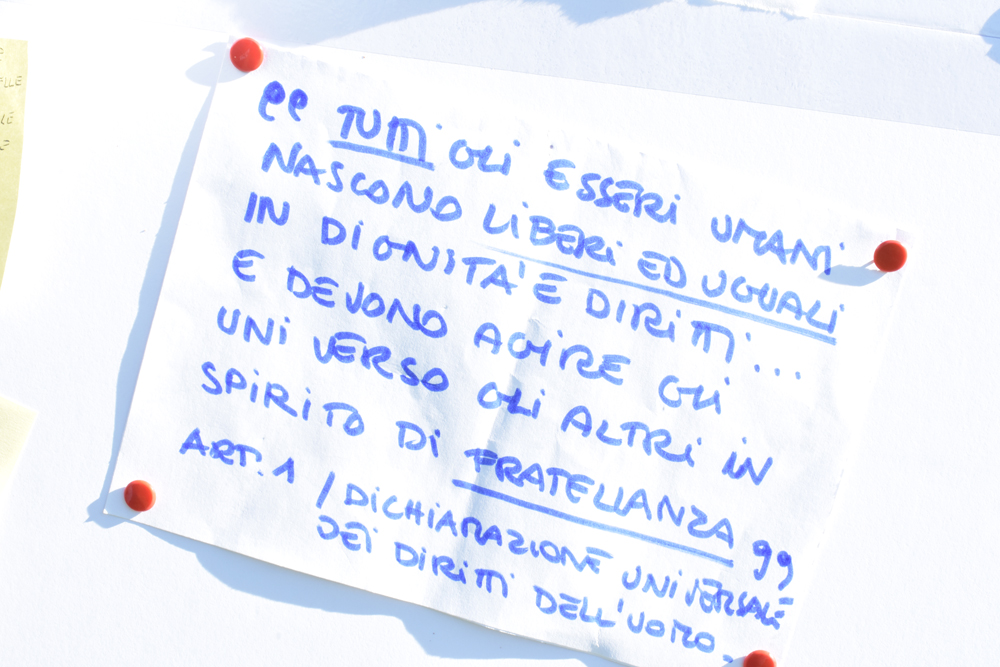 “ TUTTI GLI ESSERI UMANI
NASCONO LIBERI ED UGUALI
IN DIGNITA' E DIRITTI...
E DEVONO AGIRE GLI
UNI VERSO GLI ALTRI IN
SPIRITO DI FRATELLANZA ”
ART. 1 / DICHIARAZIONE UNIVERSALE
DEI DIRITTI DELL'UOMO.